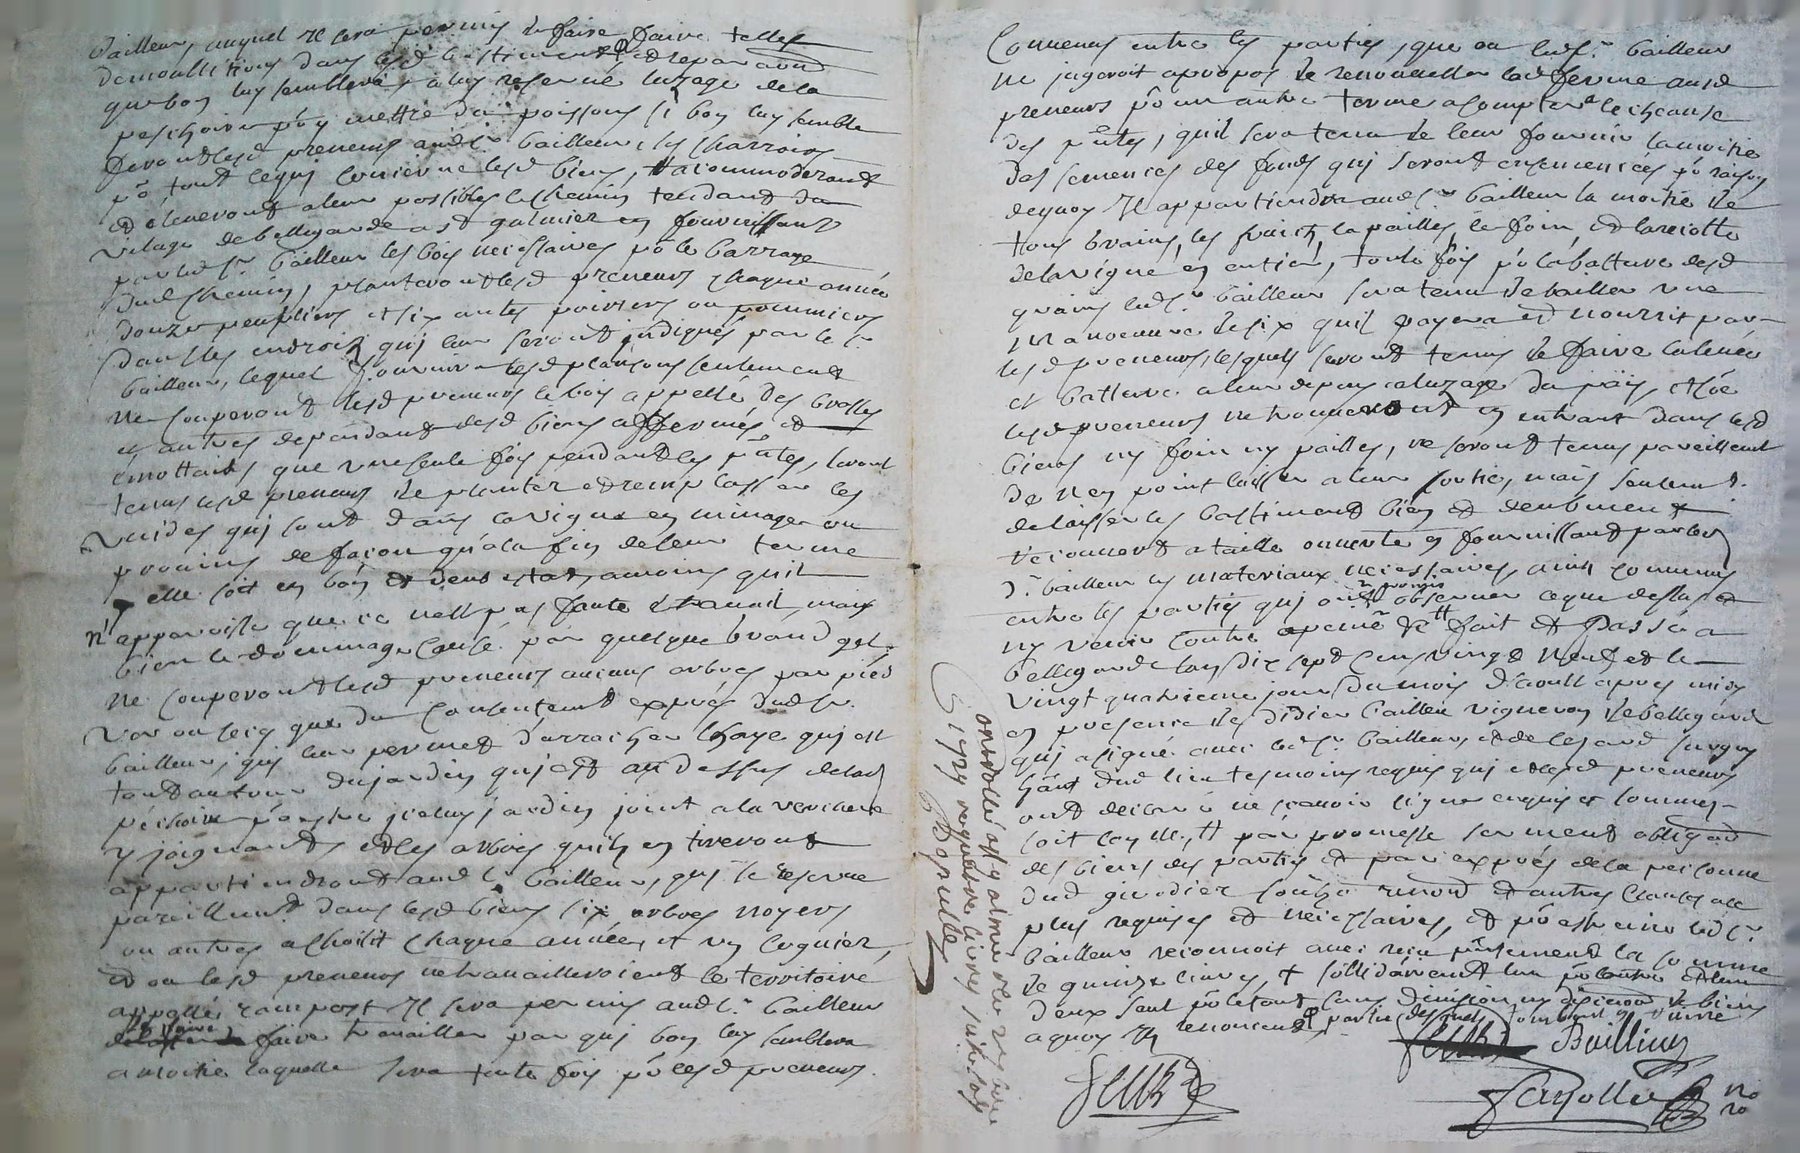 bailleur, auquel Il sera permis de faire faire telles
demoullitions dans lesd bastiments et reparaons
que bon luy semblera, a luy reservé luzage de la
peschoire p.r y mettre du poissons si bon luy semble
feront lesd preneurs aud s.r bailleur, les charrois
p.r tout ce qui concerne lesd biens, racommoderont
et eleveront a leur possible le chemin tendant du
vilage de bellegarde a s.t galmier en fournissant
par led s.r bailleur les bois necessaires p.r le barrage
dud chemin, planteront lesd preneurs chaque année
douze peupliers et six antes poiriers ou pommiers
dans les endrois qui leur seront indiqués par le s.r
bailleur, lequel fournira lesd plançons seulement
ne couperont lesd preneurs le bois appellé des brosses
et autres dependant desd biens affermés et
emottais que une seule fois pendant les p.ntes, seront
tenus lesd preneurs de planter et remplasser les
vuides qui sont dans la vigne en minage ou
provains de façon qu'a la fin de leur terme
elle soit en bon et deub estat, amoins quil
n'apparoisse que ce n'est pas faute de travail, mais
bien le dommage causé par quelque grand gel.
ne couperont lesd preneurs aucuns arbres par pied
ver ou secq que du consentement exprés dud s.r
bailleur, qui leur permet d'arracher lhaye qui est
tout autour du jardin qui est au dessus de lad
pechoire p.r estre iceluy jardin joint a la verchere
y joignants et les arbres quils en tireront
appartiendront aud s.r bailleur, qui se reserve
pareillement dans lesd biens six arbres noyers
ou autres a choisir chaque année, et un cognier,
et ou lesd preneurs ne travailleroient le territoire
appellé rampost Il sera permis aud s.r bailleur
de faire
faire travailler par qui bon luy semblera
a moitié laquelle sera toute fois p.r lesd preneurs.
Convenus entre les parties, que ou led s.r bailleur
ne jugeroit apropos de renouveller lad ferme ausd
preneurs p.r un autre terme a compter a lecheance
des p.ntes, quil sera tenu de leur fournir la moitié
des semences des fonds qui seront ensemencés p.r raison
de quoy Il appartiendra aud s.r bailleur la moitié de
tous grains, les fruits, la pailles, le foin, et la recolte
de la vigne en entier, toute fois p.r la batture desd
grains led s.r bailleur sera tenu de bailler une
manoeuvre de six quil payera et nourrit par
lesd preneurs, lesquels seront tenus de faire la levée
et batture a leur depens a luzage du païs, et où
lesd preneurs ne trouveront en entrant dans lesd
biens ny foin ny pailles, ne seront tenus pareillement
de n'en point laisser a leur sortie, mais seulement
de laisser les bastiments bien et deubment
recouvert a taille ouverte en fournissant par led
s.r bailleur les materiaux necessaires, ainsi convenus
entre les parties qui ont promis observer ce que dessus et
ny venir contre a peine &c.tt fait et passé a
bellegarde lan dix sept cens vingt neuf et le
vingt quatrieme jour du mois d'aoust apres midy
en presence de didier caillier vigneron de bellegarde
qui a signé avec led s.r bailleur, et de
dud lieu tesmoins requis qui et lesd preneurs
ont declaré ne scavoir signer enquis et sommes
soit con.llé.tt par promesse serment obligaon
des biens des parties et par exprés de la personne
dud soubs renond et autres clauses acc
plus requises et necessaires, et p.r estreine led s.r
bailleur reconnoit avoir receu p.ntement la somme
de quinze livres, et sollidairement lun p.r lautre et lun
deux seul p.r le tout sans division ny discution de biens
a quoy Ils renoncent partie desquels tombent en ruine
controllé a s.t galmier le
1729 receu livres